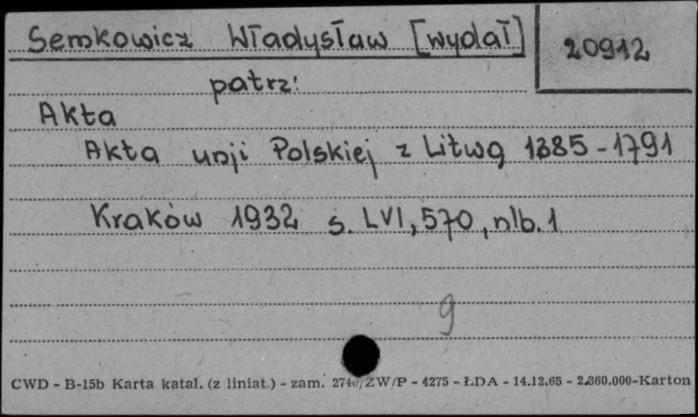 Semkowicz Władysław [wydał]
20912
patrz:
Akta
Akta unji Polskiej z Litwą 1385-1791
Kraków 1932 s. LVI, 570, nlb. 1
9
CWD - B-15b Karta katal. (z liniat.) - zam. 2740/ZW/P - 4275 - ŁDA - 14.12.65 - 2.360.000-Karton